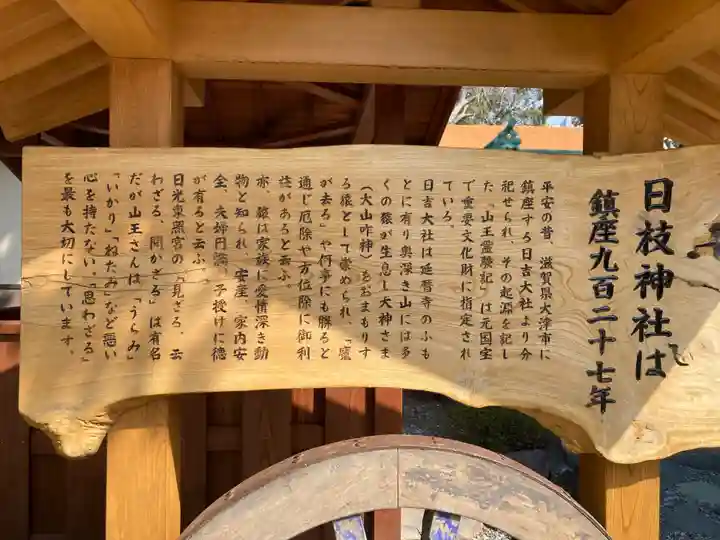 日枝神社は
鎮座九百二十七年
平安の昔、滋賀県大津市に
鎮座する日吉大社より分
祀せられ、その起源を記し
た「山王霊験記」は元国宝
で重要文化財に指定され
ている。
日吉大社は延暦寺のふも
とに有り奥深き山には多
くの猿が生息し大神さま
(大山咋神)をおまもりす
る猿として崇められ、「魔
が去る」や何事にも勝ると
通じ厄除や方位除に御利
益があると云ふ。
亦、猿は家族に愛情深き動
物と知られ、安産、家内安
全、夫婦円満、子授けに徳
が有ると云ふ。
日光東照宮の「見ざる、云
わざる、聞かざる」は有名
だが山王さんは「うらみ」
「いかり」「ねたみ」など悪い
心を持たない。「思わざる」
を最も大切にしています。